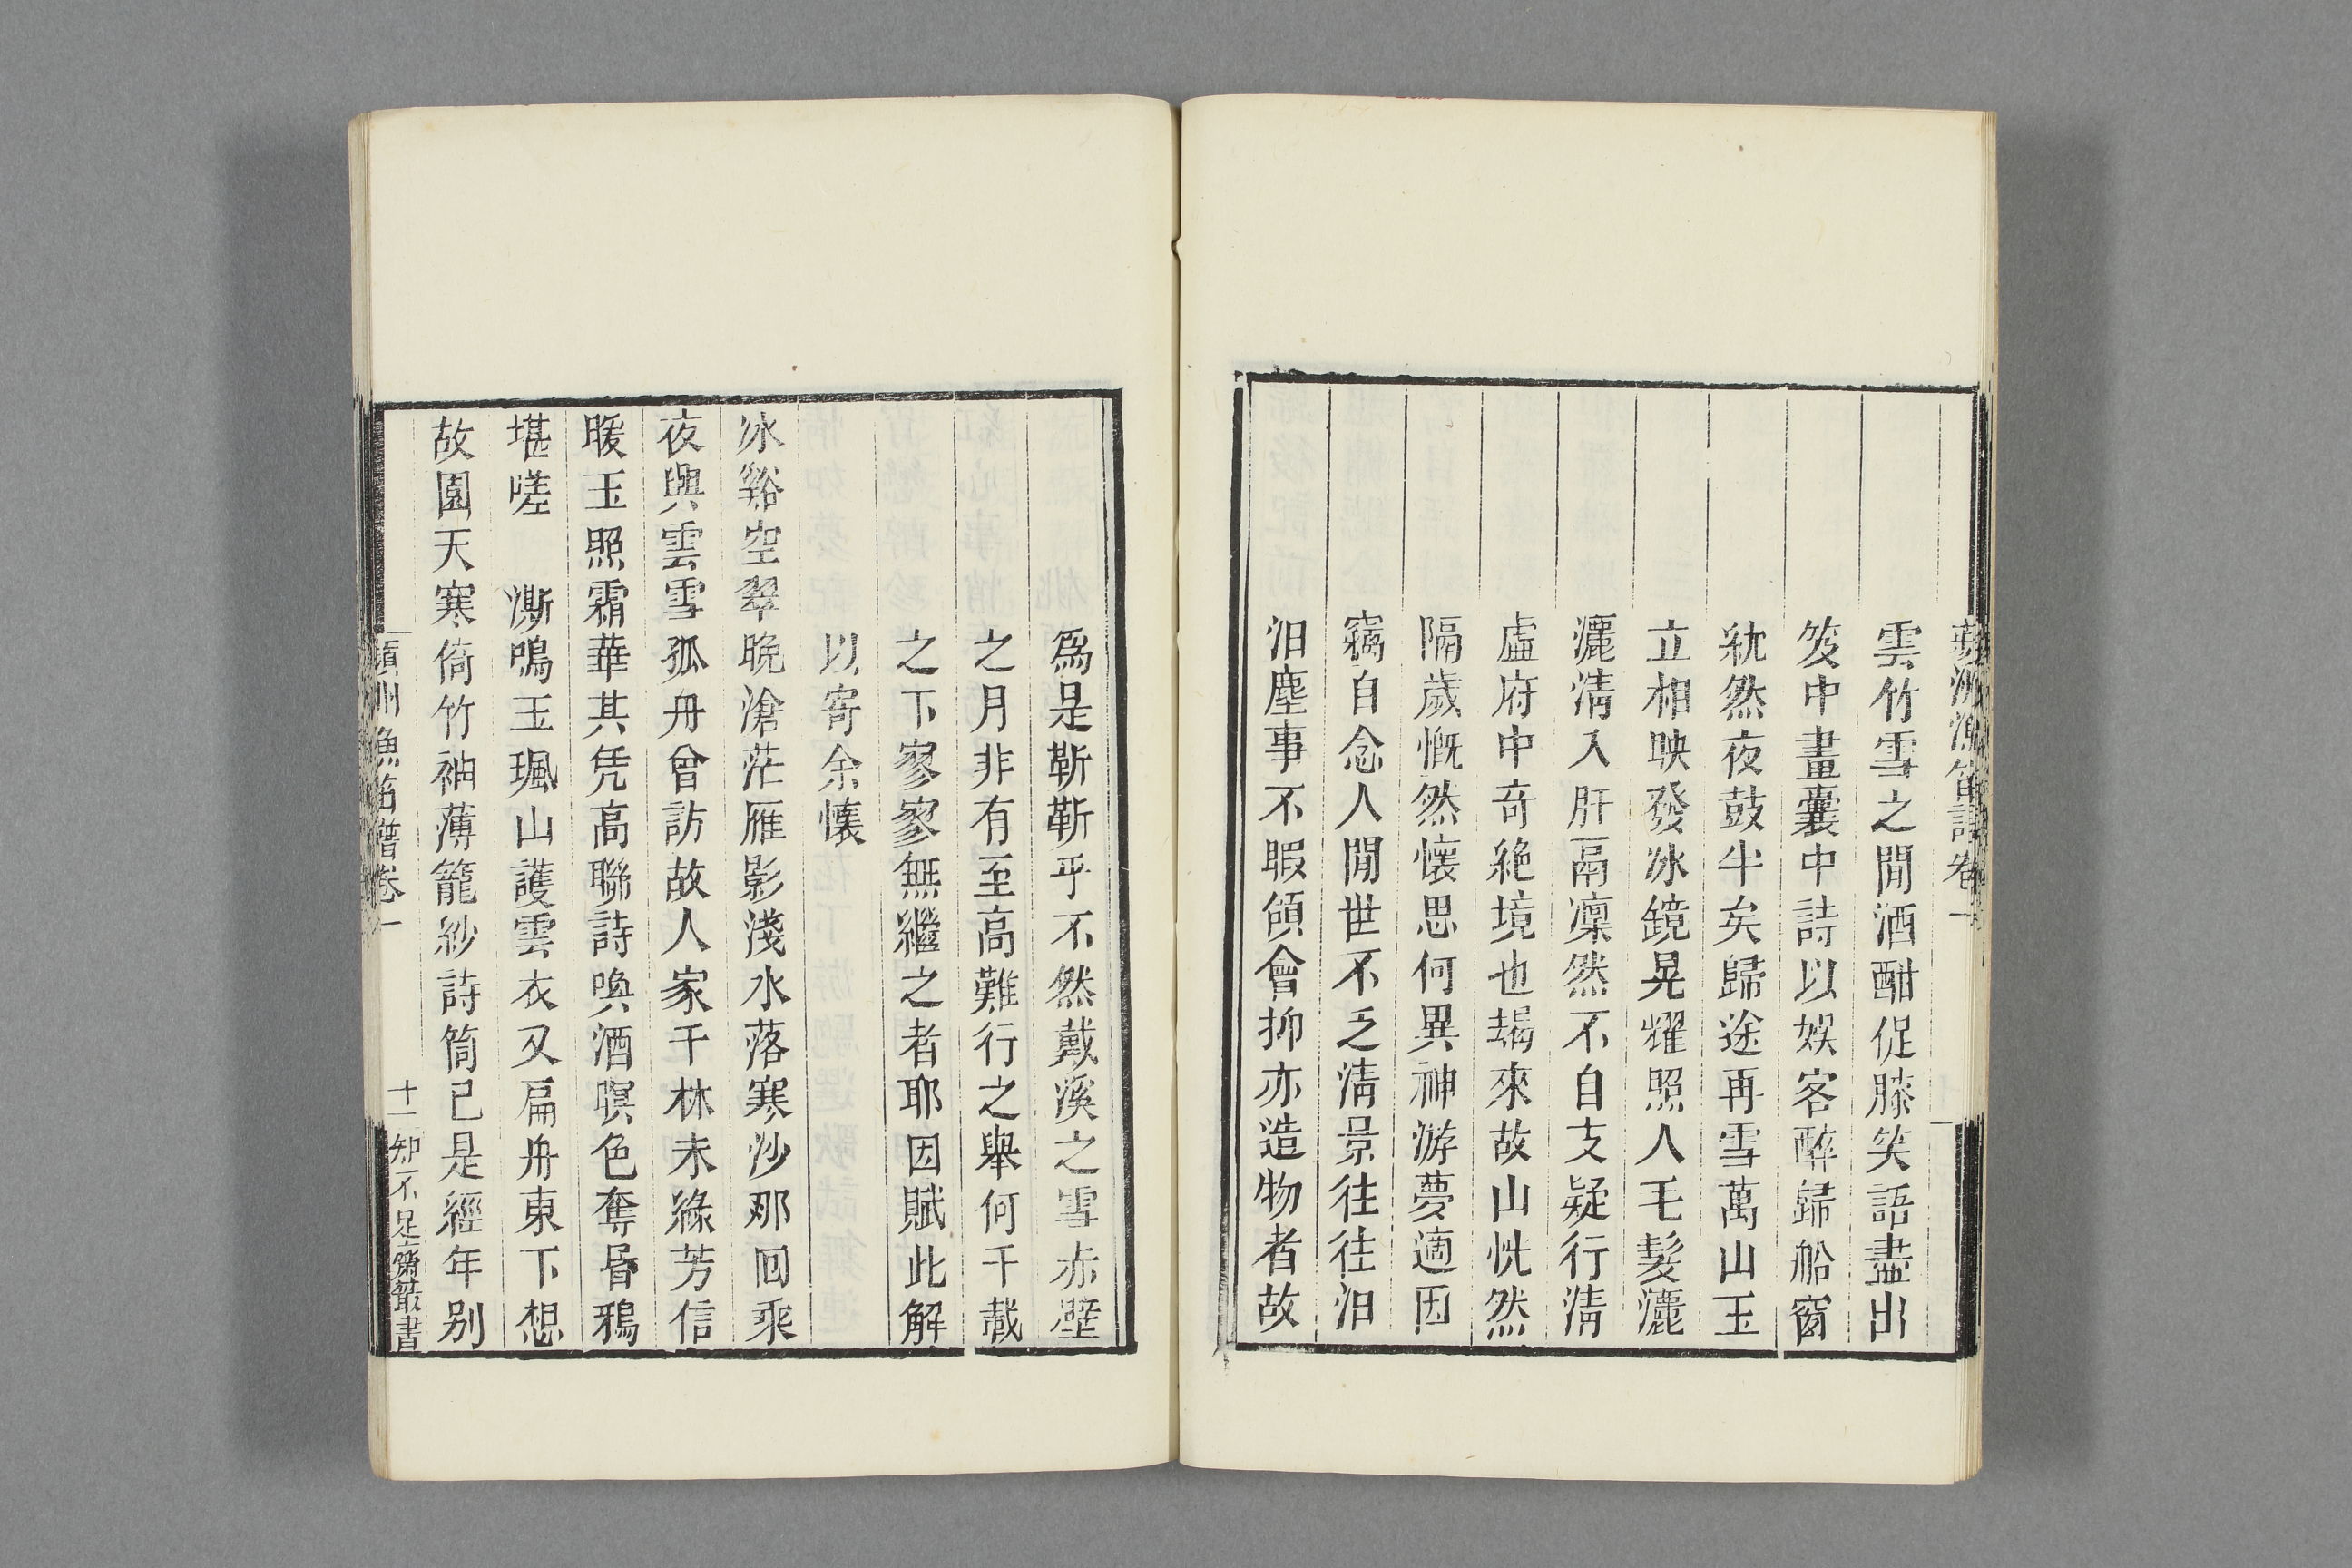 蘋洲漁笛譜卷一
雲竹雪之閒酒酣促膝笑語盡出
笈中畫囊中詩以娱客醉歸船窗
紞然夜鼓半矣歸途再雪萬山玉
立相映發冰鏡晃耀照人毛髮灑
灑淸入肝鬲凜然不自支疑行淸
虛府中奇絶境也朅來故山恍然
隔歲慨然懷思何異神游夢適因
竊自念人閒世不乏淸景往往汨
汨塵事不暇領會抑亦造物者故
爲是靳靳乎不然戴溪之雪赤壁
之月非有至高難行之舉何千載
之下寥寥無繼之者耶因賦此解
以寄余懷
冰谿空翠晚滄茫雁影淺水落寒沙那囘乘
夜興雲雪孤舟曾訪故人家千林未綠芳信
暖玉照霜華其凭高聯詩喚酒暝色奪昏鴉
堪嗟　澌鳴玉珮山護雲衣又扁舟東下想
故園天寒倚竹袖薄籠紗詩筒已是經年别
蘋洲漁笛譜卷一
十一
知不足齋叢書